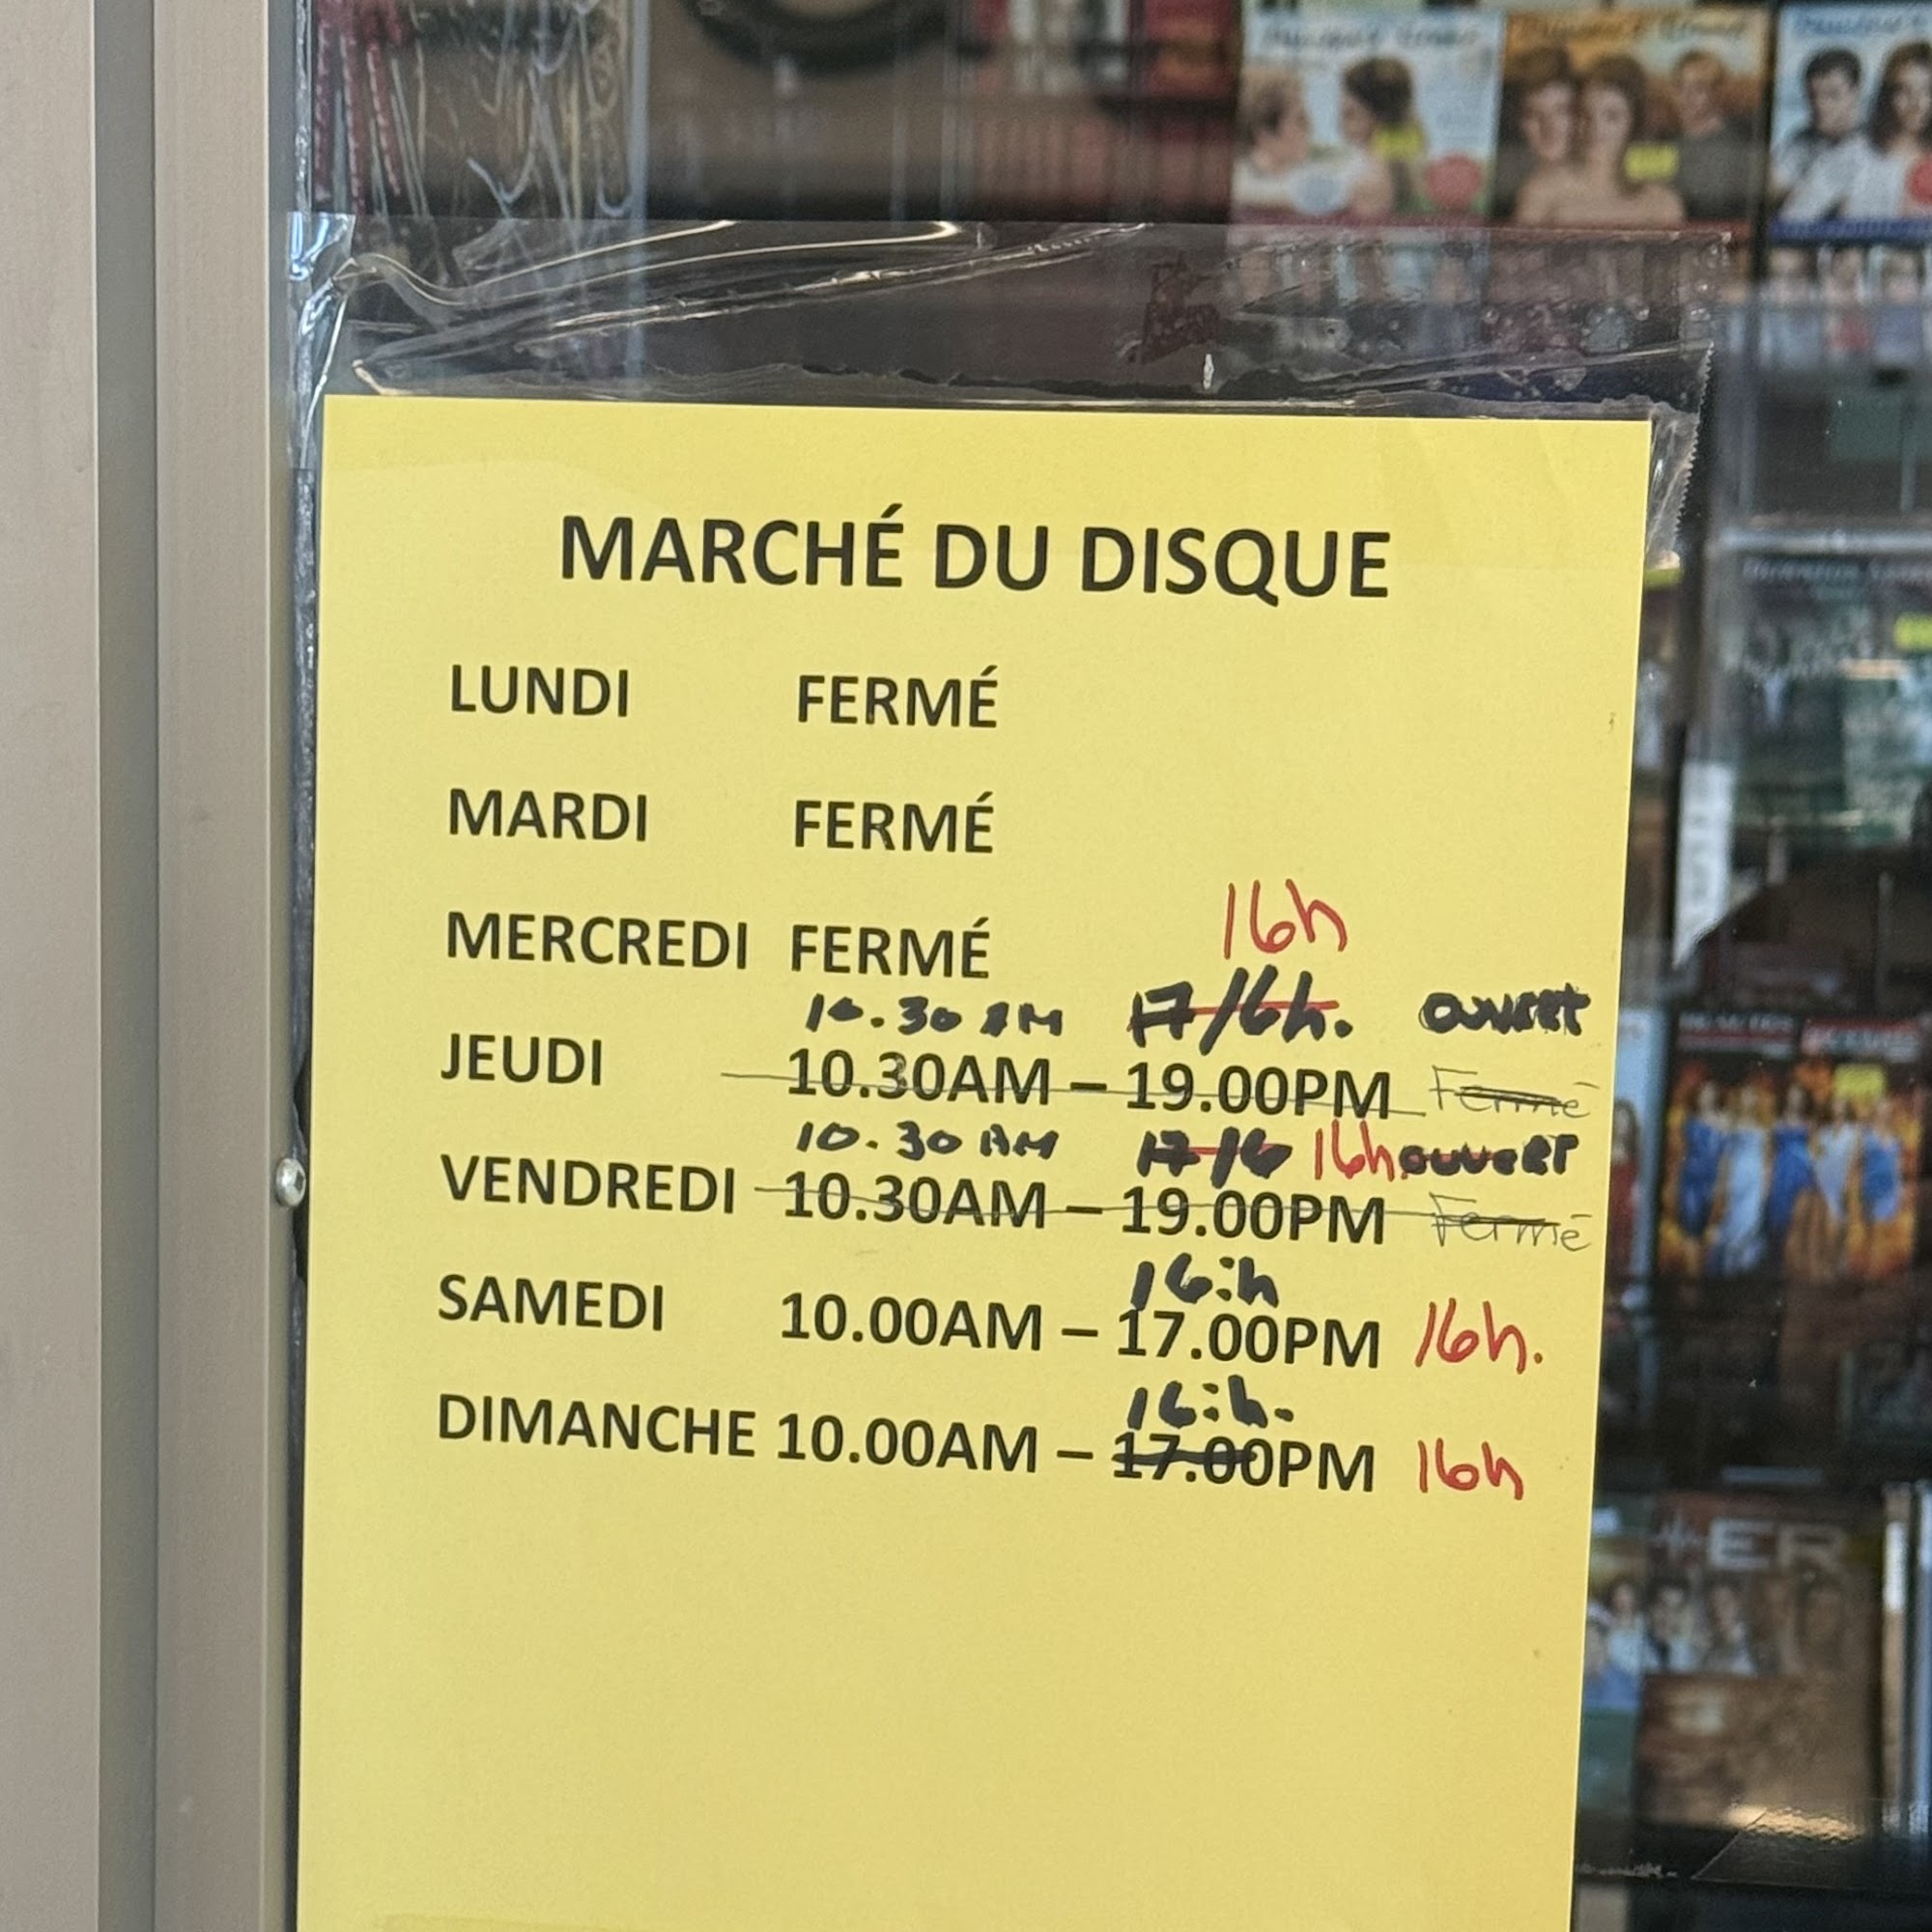 MARCHÉ DU DISQUE
LUNDI FERMÉ
MARDI FERMÉ
MERCREDI FERMÉ
16h
10.30 AM 17/16h. ouvert
JEUDI 10.30AM – 19.00PM Fermé
10.30 AM 17/16 16h. ouvert
VENDREDI 10.30AM – 19.00PM Fermé
16:h
SAMEDI 10.00AM – 17.00PM 16h.
16:h.
DIMANCHE 10.00AM – 17.00PM 16h
ER